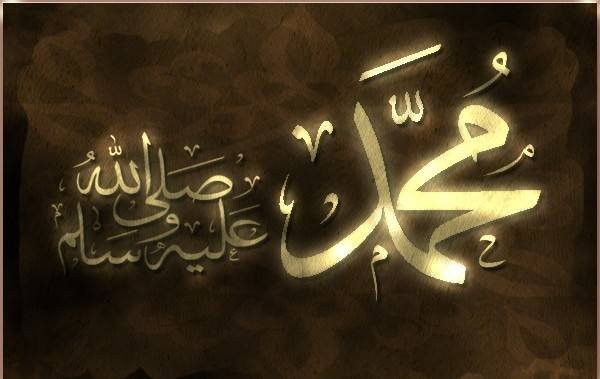 مُحَمَّد
صَلَى اللهُ
عَلَيْهِ وَسَلم